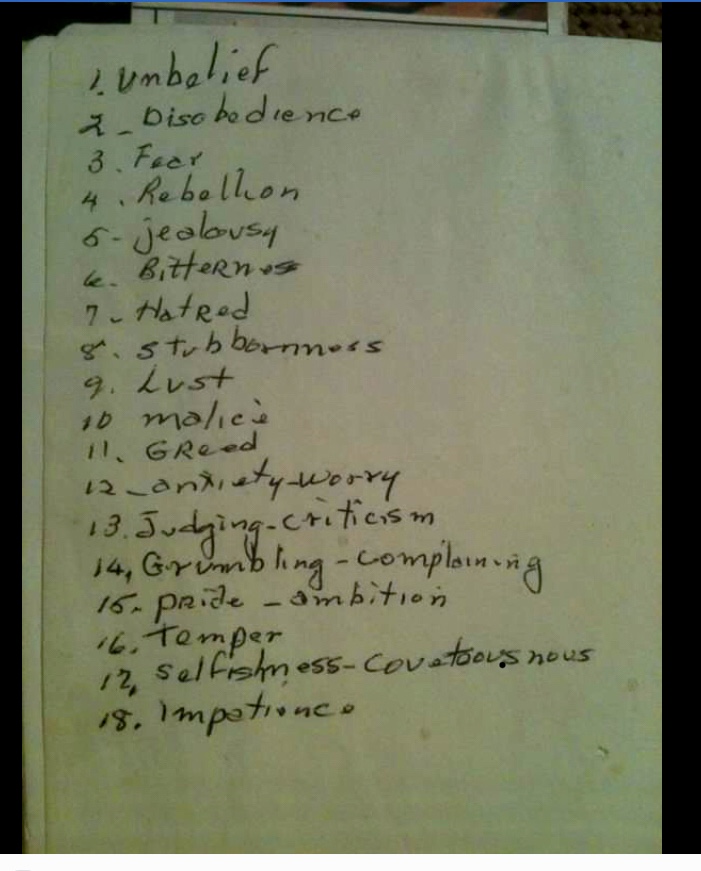 1. Unbelief
2 - Disobedience
3. Fear
4. Rebellion
5- jealousy
6- Bitternes
7- HatRed
8. stubbornness
9. Lust
10 malice
11. GReed
12 - anxiety-worry
13. Judging-criticism
14, Grumbling - complaining
15- pride - ambition
16. Temper
17, Selfishness-Covetousnous
18. Impatience